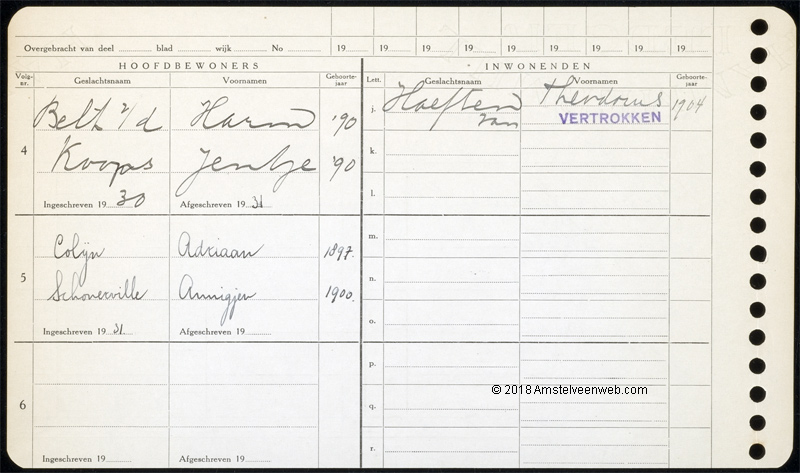 Overgebracht van deel blad wijk No 19 19 19 19 19 19 19 19 19
HOOFDBEWONERS
Volg-nr. Geslachtsnaam Voornamen Geboorte-jaar
4
Belt v/d Harm '90
Koops Jentje '90
Ingeschreven 19 30 Afgeschreven 19 31
5
Colijn Adriaan 1897
Schoneville Annigjen 1900.
Ingeschreven 19 31 Afgeschreven 19
6
Ingeschreven 19 Afgeschreven 19
INWONENDEN
Lett. Geslachtsnaam Voornamen Geboorte-jaar
j. Haeften van Theodorus 1904
VERTROKKEN
k.
l.
m.
n.
o.
p.
© 2018 Amstelveenweb.com
q.
r.